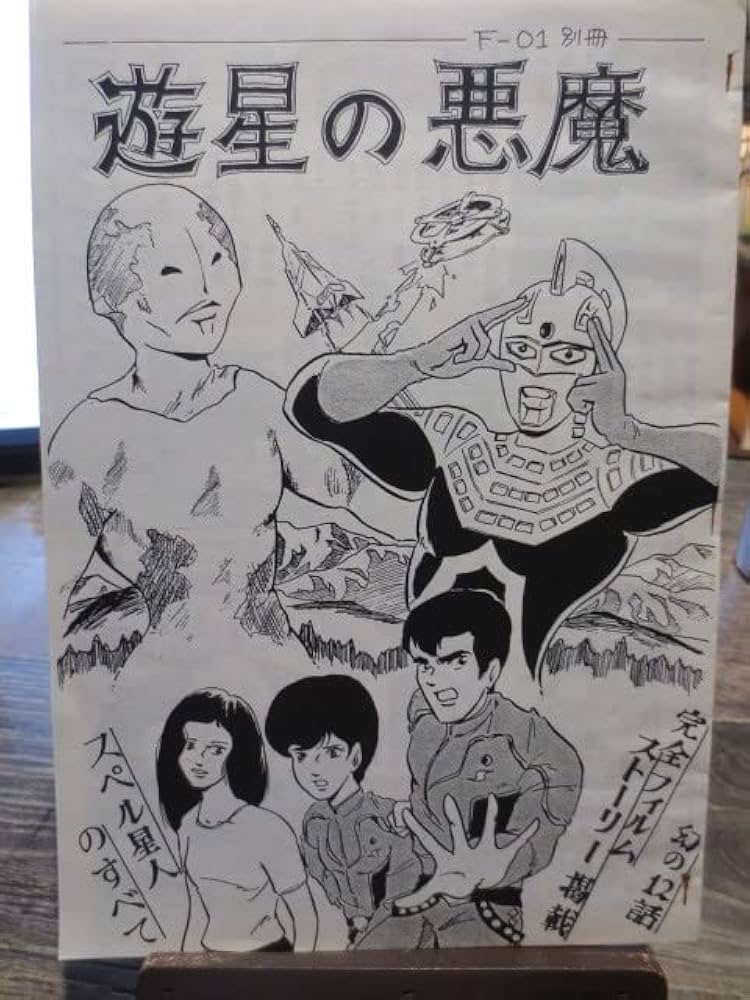 F-01 別冊
遊星の悪魔
幻の12話
完全フィルム
ストーリー掲載
スペル星人
のすべて